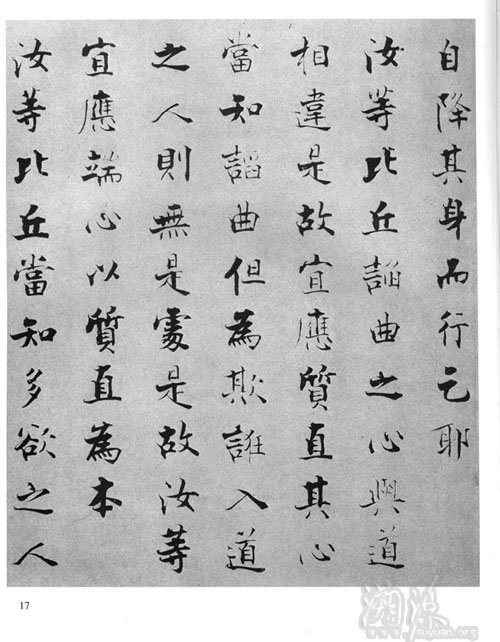 自降其身而行乞耶
汝等比丘諂曲之心與道
相違是故宜應質直其心
當知諂曲但為欺誑入道
之人則無是處是故汝等
宜應端心以質直為本
汝等比丘當知多欲之人
17